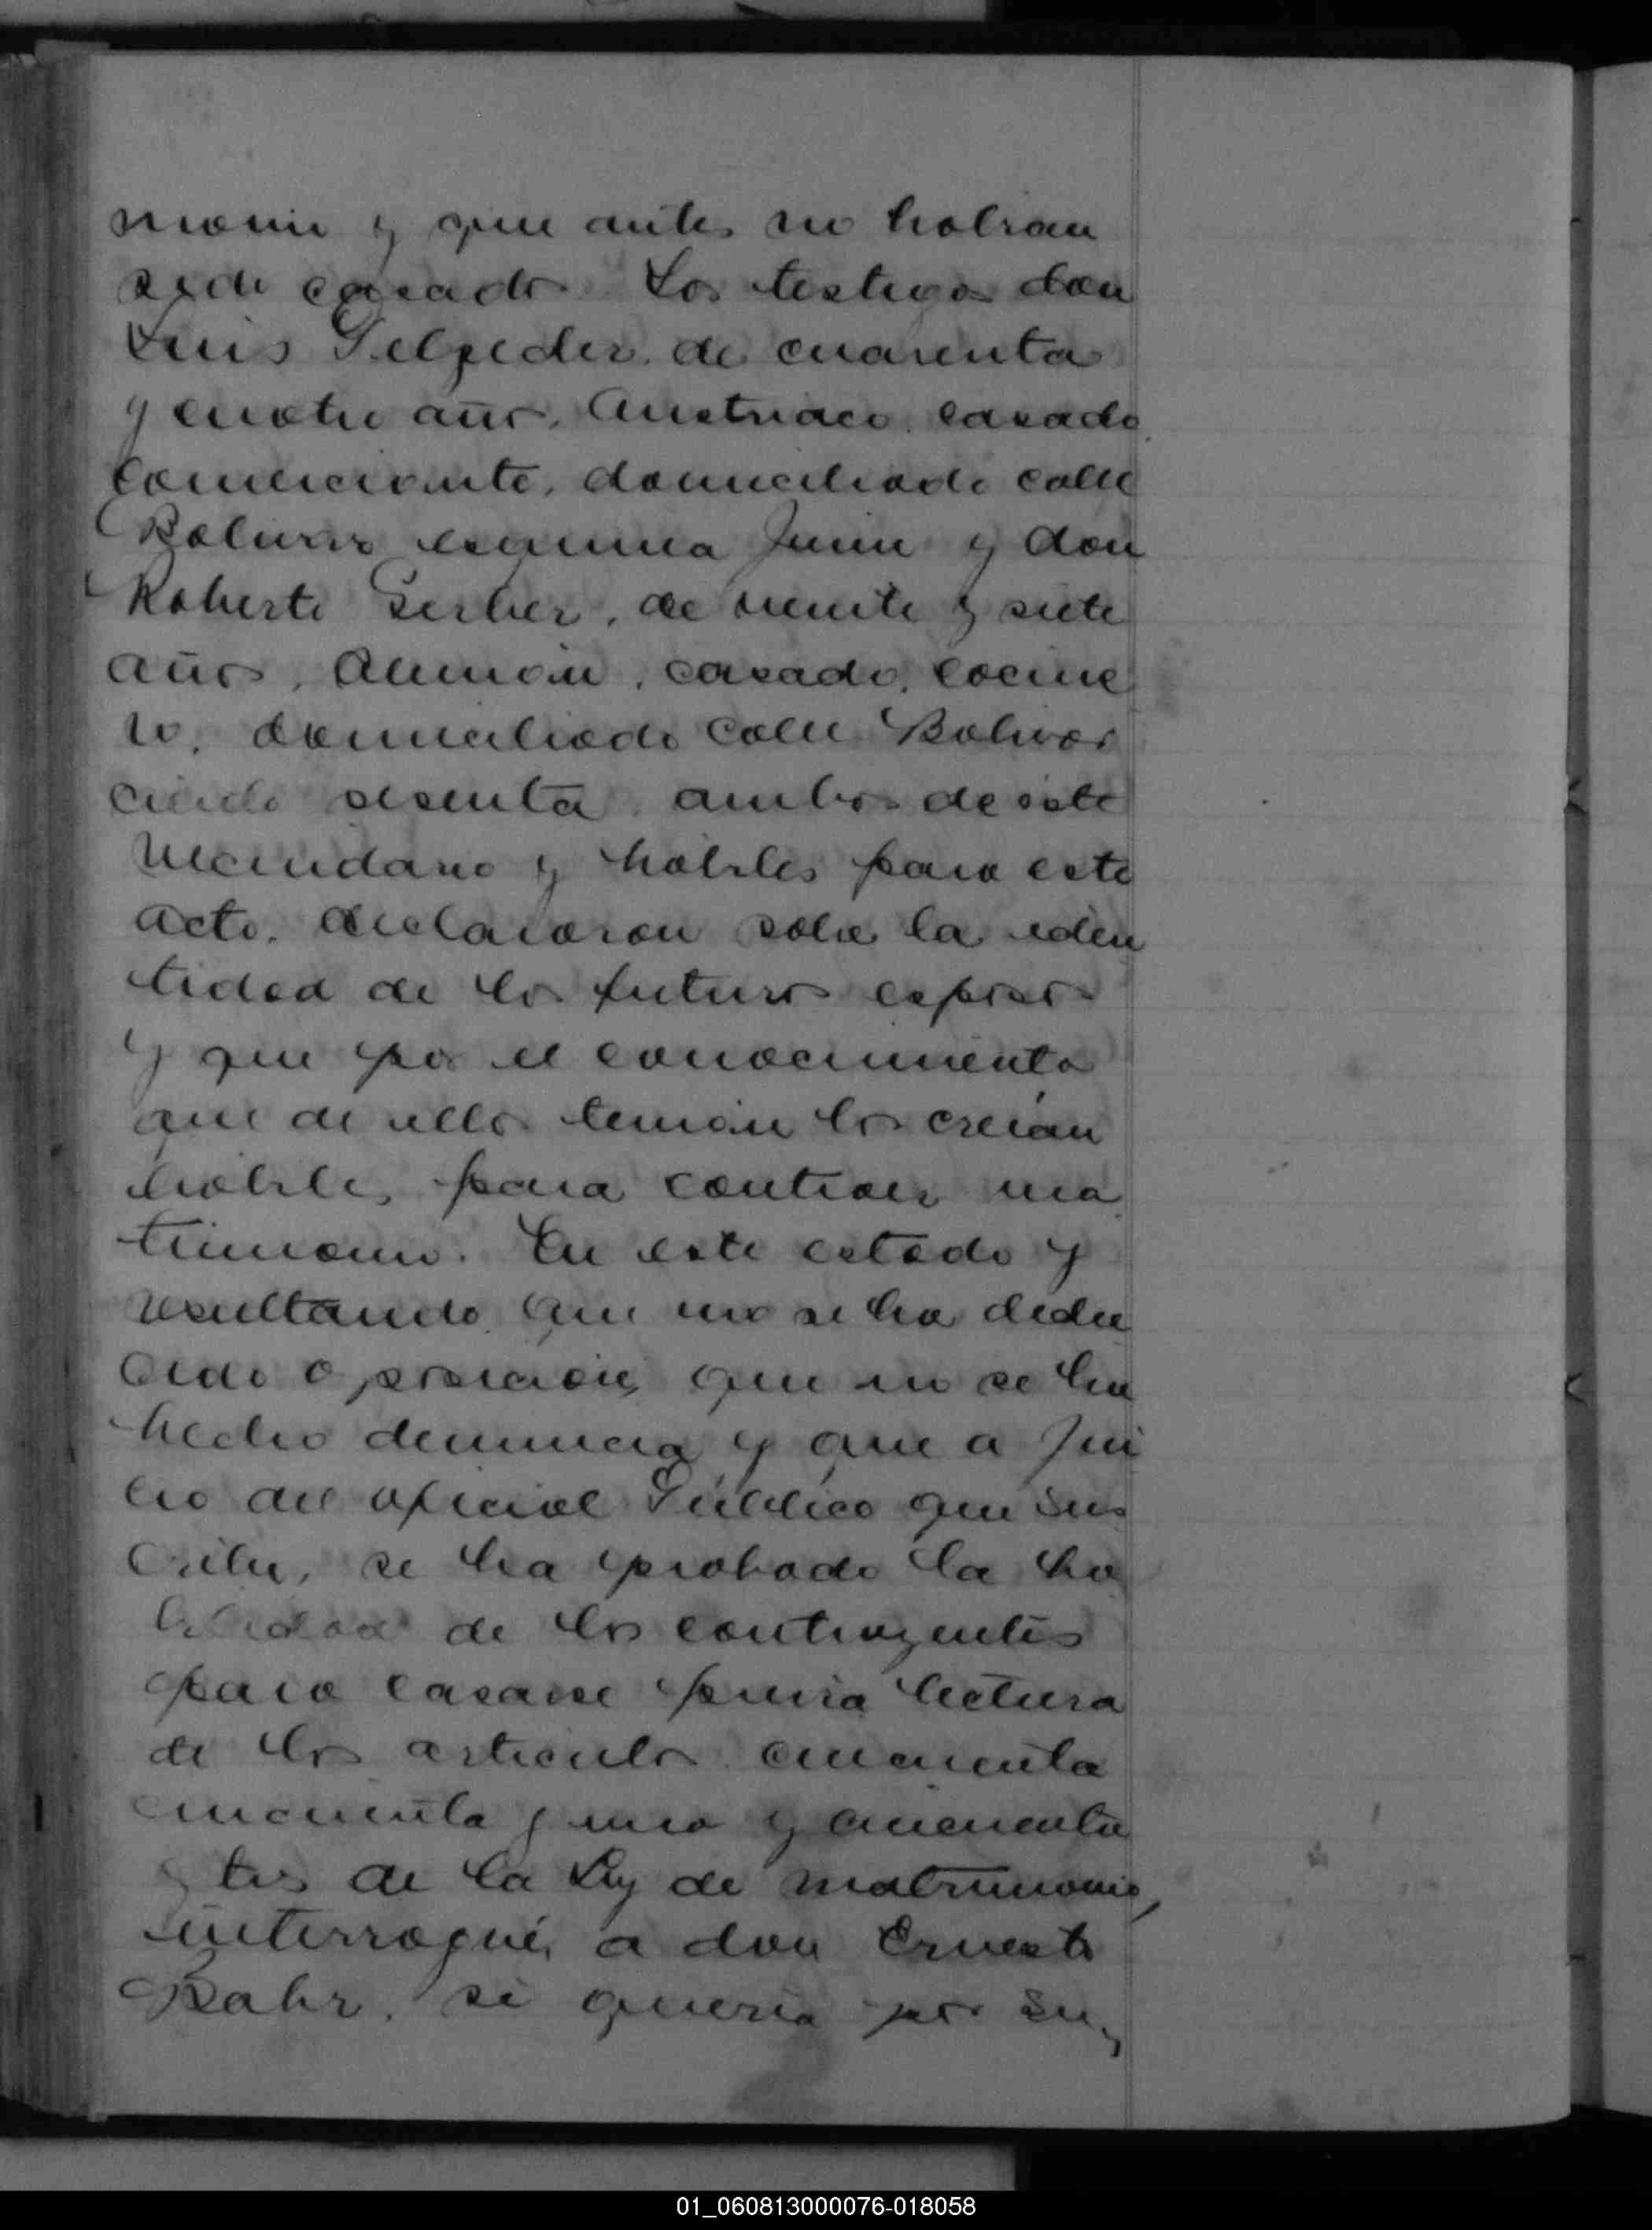 monio y que antes no habian
sido casados. Los testigos don
Luis Pelpeder, de cuarenta
y cuatro años, Austriaco, casado,
Comerciante, domiciliado calle
Bolivar esquina Junin y don
Roberto Gerber, de veinte y siete
años, Aleman, casado, cocine
ro, domiciliado calle Bolivar
ciento sesenta, ambos de este
vecindario y habiles para este
acto, declararon sobre la iden
tidad de los futuros esposos
y que por el conocimiento
que de ellos tenian los creian
habiles para contraer ma
trimonio. En este estado y
resultando que no se ha dedu
cido oposicion, que no se ha
hecho denuncia y que a jui
cio del oficial Público que sus
cribe, se ha probado la ha
bilidad de los contrayentes
para casarse previa lectura
de los articulos cincuenta
cincuenta y uno y cincuenta
y tres de la Ley de matrimonio,
interrogué, a don Ernesto
Bahr, si queria por su
01_060813000076-018058